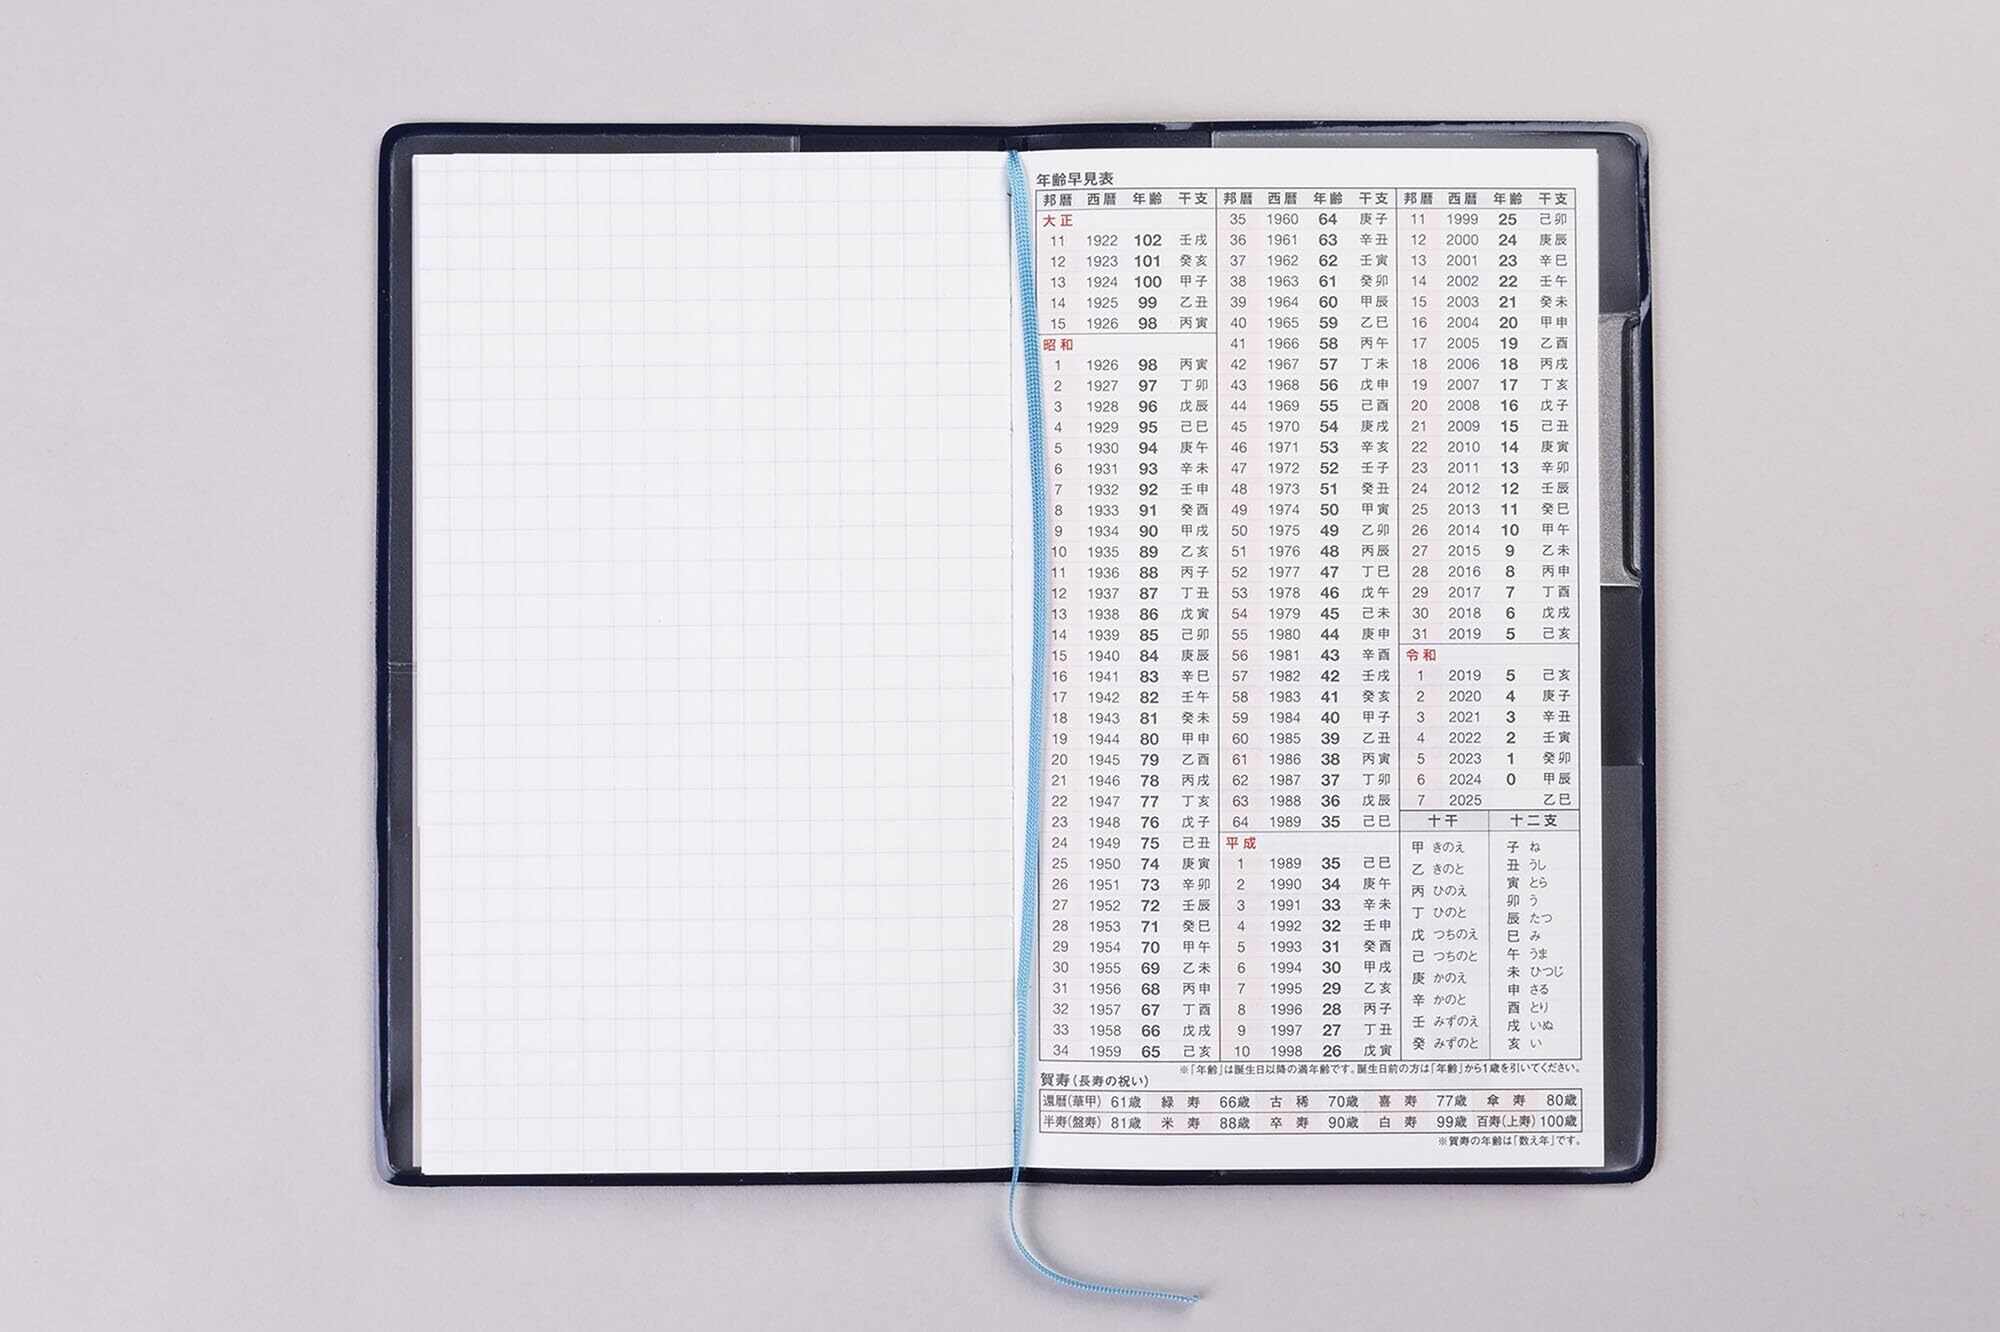 年齢早見表
邦暦 西暦 年齢 干支
大正
11 1922 102 壬戌
12 1923 101 癸亥
13 1924 100 甲子
14 1925 99 乙丑
15 1926 98 丙寅
昭和
1 1926 98 丙寅
2 1927 97 丁卯
3 1928 96 戊辰
4 1929 95 己巳
5 1930 94 庚午
6 1931 93 辛未
7 1932 92 壬申
8 1933 91 癸酉
9 1934 90 甲戌
10 1935 89 乙亥
11 1936 88 丙子
12 1937 87 丁丑
13 1938 86 戊寅
14 1939 85 己卯
15 1940 84 庚辰
16 1941 83 辛巳
17 1942 82 壬午
18 1943 81 癸未
19 1944 80 甲申
20 1945 79 乙酉
21 1946 78 丙戌
22 1947 77 丁亥
23 1948 76 戊子
24 1949 75 己丑
25 1950 74 庚寅
26 1951 73 辛卯
27 1952 72 壬辰
28 1953 71 癸巳
29 1954 70 甲午
30 1955 69 乙未
31 1956 68 丙申
32 1957 67 丁酉
33 1958 66 戊戌
34 1959 65 己亥
邦暦 西暦 年齢 干支
35 1960 64 庚子
36 1961 63 辛丑
37 1962 62 壬寅
38 1963 61 癸卯
39 1964 60 甲辰
40 1965 59 乙巳
41 1966 58 丙午
42 1967 57 丁未
43 1968 56 戊申
44 1969 55 己酉
45 1970 54 庚戌
46 1971 53 辛亥
47 1972 52 壬子
48 1973 51 癸丑
49 1974 50 甲寅
50 1975 49 乙卯
51 1976 48 丙辰
52 1977 47 丁巳
53 1978 46 戊午
54 1979 45 己未
55 1980 44 庚申
56 1981 43 辛酉
57 1982 42 壬戌
58 1983 41 癸亥
59 1984 40 甲子
60 1985 39 乙丑
61 1986 38 丙寅
62 1987 37 丁卯
63 1988 36 戊辰
64 1989 35 己巳
平成
1 1989 35 己巳
2 1990 34 庚午
3 1991 33 辛未
4 1992 32 壬申
5 1993 31 癸酉
6 1994 30 甲戌
7 1995 29 乙亥
8 1996 28 丙子
9 1997 27 丁丑
10 1998 26 戊寅
邦暦 西暦 年齢 干支
11 1999 25 己卯
12 2000 24 庚辰
13 2001 23 辛巳
14 2002 22 壬午
15 2003 21 癸未
16 2004 20 甲申
17 2005 19 乙酉
18 2006 18 丙戌
19 2007 17 丁亥
20 2008 16 戊子
21 2009 15 己丑
22 2010 14 庚寅
23 2011 13 辛卯
24 2012 12 壬辰
25 2013 11 癸巳
26 2014 10 甲午
27 2015 9 乙未
28 2016 8 丙申
29 2017 7 丁酉
30 2018 6 戊戌
31 2019 5 己亥
令和
1 2019 5 己亥
2 2020 4 庚子
3 2021 3 辛丑
4 2022 2 壬寅
5 2023 1 癸卯
6 2024 0 甲辰
7 2025 乙巳
十干
甲 きのえ
乙 きのと
丙 ひのえ
丁 ひのと
戊 つちのえ
己 つちのと
庚 かのえ
辛 かのと
壬 みずのえ
癸 みずのと
十二支
子 ね
丑 うし
寅 とら
卯 う
辰 たつ
巳 み
午 うま
未 ひつじ
申 さる
酉 とり
戌 いぬ
亥 い
※「年齢」は誕生日以降の満年齢です。誕生日前の方は「年齢」から1歳を引いてください。
賀寿(長寿の祝い)
還暦(華甲) 61歳 緑寿 66歳 古稀 70歳 喜寿 77歳 傘寿 80歳
半寿(盤寿) 81歳 米寿 88歳 卒寿 90歳 白寿 99歳 百寿(上寿) 100歳
※賀寿の年齢は「数え年」です。